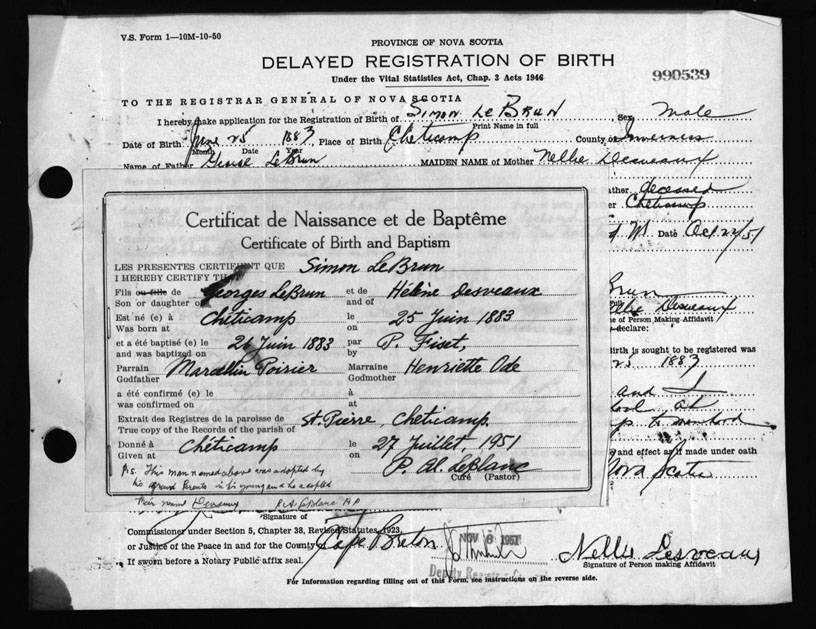 V.S. Form 1—10M-10-50
PROVINCE OF NOVA SCOTIA
DELAYED REGISTRATION OF BIRTH
Under the Vital Statistics Act, Chap. 3 Acts 1946
990539
TO THE REGISTRAR GENERAL OF NOVA SCOTIA
I hereby make application for the Registration of Birth of SIMON LE BRUN Sex Male
Print Name in full
Date of Birth June 25 1883 Place of Birth Cheticamp County of Inverness
Month Date Year
Name of Father LeBrun MAIDEN NAME of Mother Nellie Desveaux
ather deceased
er Cheticamp
Date Oct 22/51
Certificat de Naissance et de Baptême
Certificate of Birth and Baptism
LES PRESENTES CERTIFIENT QUE Simon LeBrun
I HEREBY CERTIFY THAT
Fils ou fille de Georges LeBrun et de Hélène Desveaux
Son or daughter of and of
Est né (e) à Chéticamp le 25 Juin 1883
Was born at on
et a été baptisé (e) le 26 Juin 1883 par P. Fiset,
and was baptized on by
Parrain Marcellin Poirier Marraine Henriette Ode
Godfather Godmother
a été confirmé (e) le à
was confirmed on at
Extrait des Registres de la paroisse de St. Pierre, Chéticamp.
True copy of the Records of the parish of
Donné à Chéticamp le 27 Juillet, 1951
Given at on
P. Al. LeBlanc
Curé (Pastor)
P.S. This man named above was adopted by
his grand Parents in his young and he accepted
their name Desveaux
Brun
Desveaux
e of Person Making Affidavit
declare:
irth is sought to be registered was
25 1883
and
and effect as if made under oath
Nova Scotia
Signature of
Commissioner under Section 5, Chapter 38, Revised Statutes, 1923,
or Justice of the Peace in and for the County Cape Breton
If sworn before a Notary Public affix seal.
NOV 8 1951
Deputy Registrar
Nellie Desveaux
Signature of Person making Affidavit
For Information regarding filling out of this Form, see instructions on the reverse side.